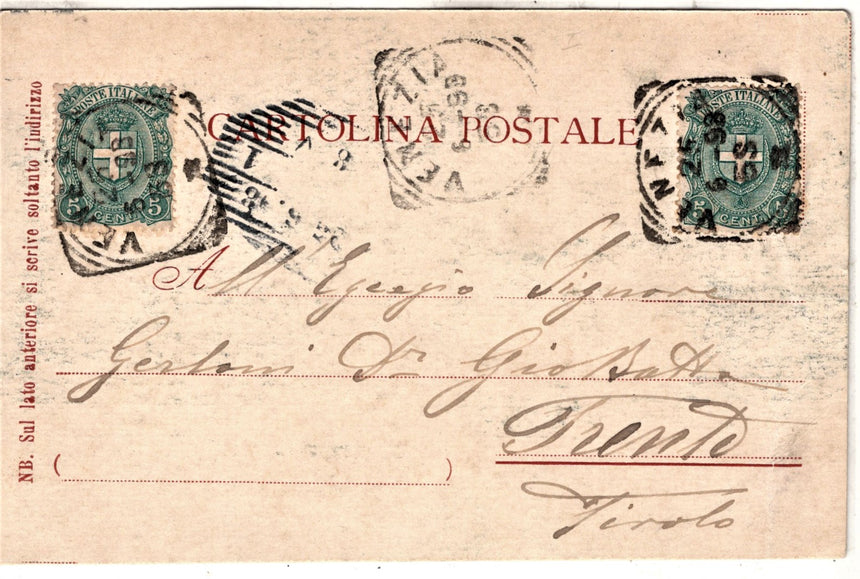 POSTE ITALIANE
5 CENT 5
VENEZIA
VENEZIA
POSTE ITALIANE
5 CENT
VENEZIA
98
CARTOLINA POSTALE
All' Egregio Signore
Gerloni Dr. Gio Batta
Trento
Tirolo
( )
NB. Sul lato anteriore si scrive soltanto l'indirizzo